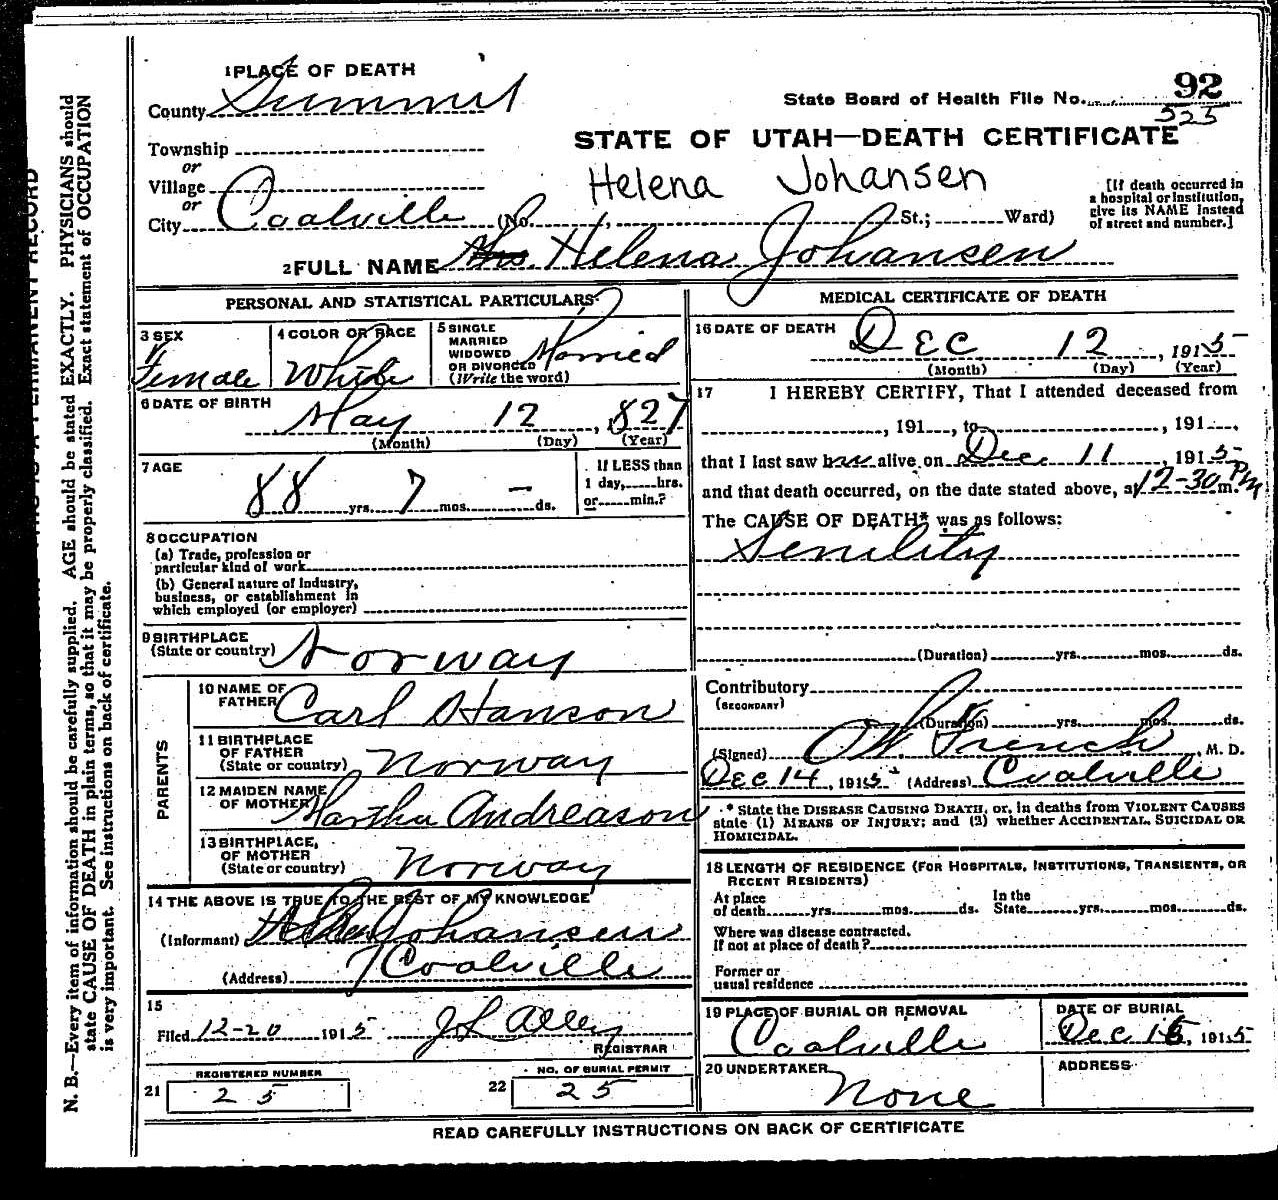 1 PLACE OF DEATH
County Summit
State Board of Health File No. 92
525
STATE OF UTAH—DEATH CERTIFICATE
Township
or
Village
or
City Coalville (No. , St.; Ward)
Helena Johansen
[If death occurred in
a hospital or institution,
give its NAME instead
of street and number.]
2 FULL NAME Mrs. Helena Johansen
PERSONAL AND STATISTICAL PARTICULARS
3 SEX
Female
4 COLOR OR RACE
White
5 SINGLE
MARRIED
WIDOWED
OR DIVORCED
(Write the word)
Married
6 DATE OF BIRTH
May 12, 1827
(Month) (Day) (Year)
7 AGE
88 yrs. 7 mos. — ds.
If LESS than
1 day, hrs.
or min.?
8 OCCUPATION
(a) Trade, profession or
particular kind of work
(b) General nature of Industry,
business, or establishment in
which employed (or employer)
9 BIRTHPLACE
(State or country) Norway
PARENTS
10 NAME OF
FATHER Carl Hanson
11 BIRTHPLACE
OF FATHER
(State or country) Norway
12 MAIDEN NAME
OF MOTHER Martha Andreason
13 BIRTHPLACE,
OF MOTHER
(State or country) Norway
14 THE ABOVE IS TRUE TO THE BEST OF MY KNOWLEDGE
(Informant) Johansen
(Address) Coalville
15
Filed 12-20 1915 J L Allen
REGISTRAR
REGISTERED NUMBER
21 25
NO. OF BURIAL PERMIT
22 25
MEDICAL CERTIFICATE OF DEATH
16 DATE OF DEATH
Dec 12, 1915
(Month) (Day) (Year)
17 I HEREBY CERTIFY, That I attended deceased from
, 191 , to , 191 ,
that I last saw her alive on Dec 11 , 1915
and that death occurred, on the date stated above, at 12-30 P m.
The CAUSE OF DEATH* was as follows:
Senility
(Duration) yrs. mos. ds.
Contributory
(SECONDARY)
(Duration) yrs. mos. ds.
(Signed) O W French, M. D.
Dec 14, 1915 (Address) Coalville
* State the DISEASE CAUSING DEATH, or, in deaths from VIOLENT CAUSES
state (1) MEANS OF INJURY; and (2) whether ACCIDENTAL, SUICIDAL OR
HOMICIDAL.
18 LENGTH OF RESIDENCE (FOR HOSPITALS, INSTITUTIONS, TRANSIENTS, OR
RECENT RESIDENTS)
At place
of death yrs. mos. ds.
In the
State yrs. mos. ds.
Where was disease contracted.
If not at place of death?
Former or
usual residence
19 PLACE OF BURIAL OR REMOVAL
Coalville
DATE OF BURIAL
Dec 15, 1915
20 UNDERTAKER
None
ADDRESS
READ CAREFULLY INSTRUCTIONS ON BACK OF CERTIFICATE
N. B.—Every item of information should be carefully supplied. AGE should be stated EXACTLY. PHYSICIANS should
state CAUSE OF DEATH in plain terms, so that it may be properly classified. Exact statement of OCCUPATION
is very important. See instructions on back of certificate.
A PERMANENT RECORD